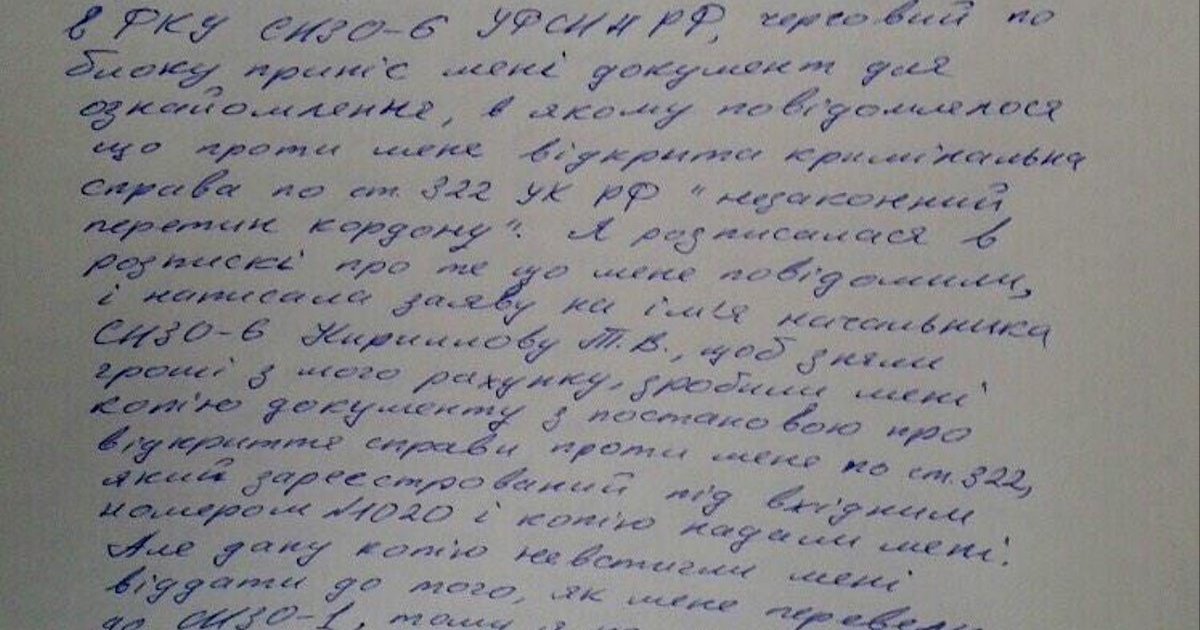 в ФКУ СИЗО-6 УФСИН РФ, черговий по
блоку приніс мені документ для
ознайомлення, в якому повідомлялося
що проти мене відкрита кримінальна
справа по ст. 322 УК РФ "незаконний
перетин кордону". Я розписалася в
розпискі про те що мене повідомили,
і написала заяву на ім'я начальника
СИЗО-6 Кириллову Т.В., щоб зняли
гроші з мого рахунку, зробили мені
копію документу з постановою про
відкриття справи проти мене по ст. 322,
який зареєстрований під вхідним
номером №1020 і копію надали мені.
Але дану копію невстигли мені
віддати до того, як мене перевели
до СИЗО-1, тому я